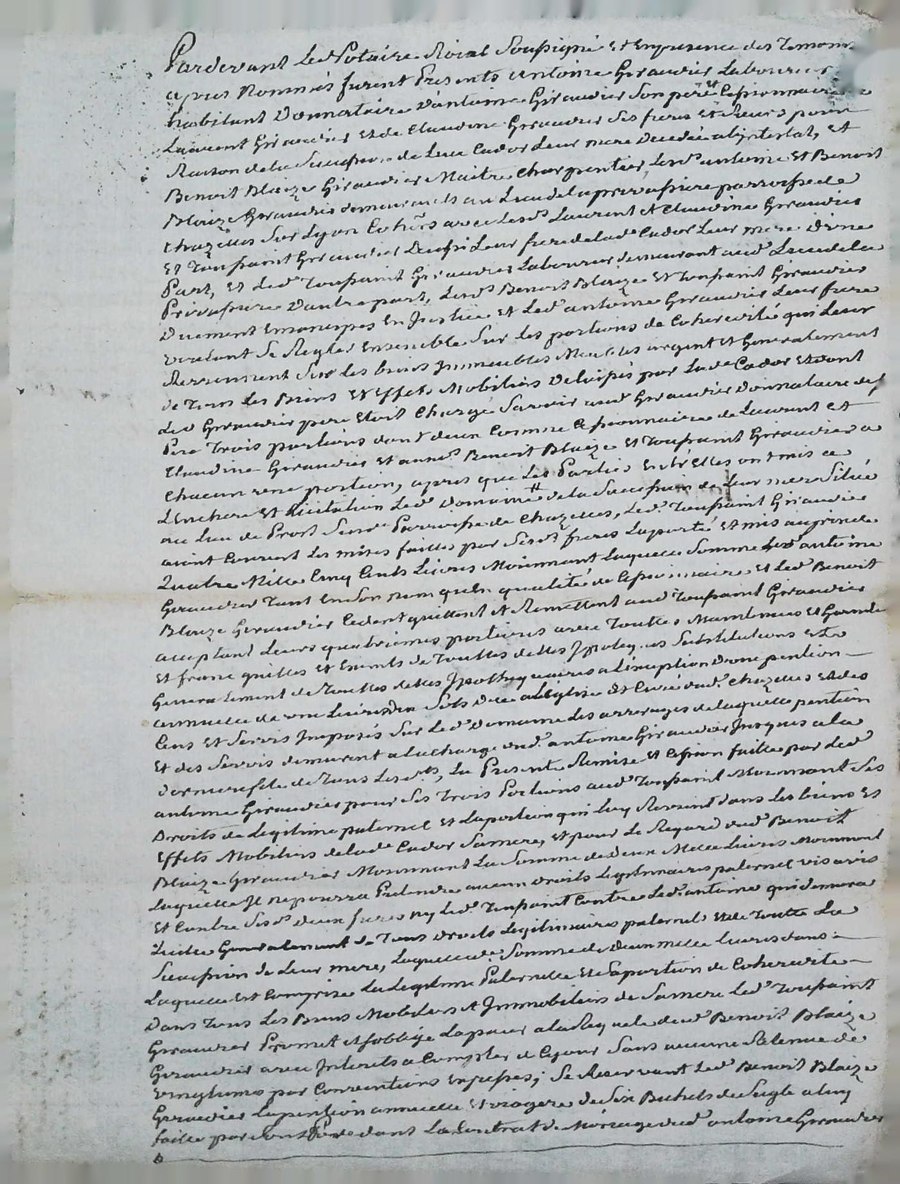 Pardevant Le Notaire Roial Soussigné et En presence des Temoins
apres Nommés furent Presents antoine Giraudier Laboureur
habitant Donnataire d'antoine Giraudier Son pere Cessionnaire de
Laurent Giraudier et de Claudine Giraudier Ses freres et Sœurs pour
Raison de la Succession de Leur mere decedée abintestat, et
Benoit Blaize Giraudier Maitre Charpentier, Lesd. antoine et Benoit
Blaize Giraudier demeurants au Lieu de la parroisse de
Chazelles Sur Lyon Cohers avec Lesd. Laurent et Claudine Giraudier
Et Toussaint Giraudier aussi Leur frere de lad. Cador Leur mere d'une
Part, et Led. Toussaint Giraudier Laboureur demeurant aud. Lieu de la
d'autre part, Lesd. Benoit Blaize et Toussaint Giraudier
Duement Emancipés En Justice et Led. antoine Giraudier Leur frere
voulant Se Regler Ensemble Sur les portions de Coheredité qui Leur
Sur les biens Immeubles Meubles argent et Generalement
de Tous Les Biens et Effets Mobiliers Delaissés par La de Cador et dont
Led. Giraudier pere Etoit Chargé Savoir aud. Giraudier Donnataire de
Pere Trois portions dont deux Comme Cessionnaire de Laurent et
Claudine Giraudier et auxd. Benoit Blaize et Toussaint Giraudier a
Chacun une portion, apres que Les Parties Entr'Elles ont mis a
L'Enchere et Licitation Led. Domaine de la Succession de Leur mere Situé
au Lieu de Parroisse de Chazelles, Led. Toussaint Giraudier
aiant Couvert Les mises faittes par Sesd. freres La porté et mis au prix de
Quatre Mille Cinq Cents Livres Moiennant Laquelle Somme Led. antoine
Giraudier Tant En Son nom qu'En qualité de Cessionnaire et Led. Benoit
Blaize Giraudier Cedent quittent et Remettent aud. Toussaint Giraudier
acceptant Leurs quatriemes portions avec Touttes Maintenues et Garantie
Et franc quittes et Exempts de Touttes dettes Substitutions et
Generalement de Touttes dettes Ipothequaires a L'exeption d'une pention
annuelle de Livres Sols Due a L'Eglise et Curé dud. Chazelles et des
Cens et Servis Imposés Sur Led. Domaine Les arrerages de laquelle pention
Et des Servis demeurent a la charge dud. antoine Giraudier Jusques a la
de Tous La Presente Remise et Cession faitte par Led.
antoine Giraudier pour Ses Trois Portions aud. Toussaint Moiennant Ses
Droits de Legitime paternel et La portion qui Luy Revient dans Les biens et
Effets Mobiliers de lad. Cador Sa mere, et pour Le Regard dud. Benoit
Blaize Giraudier Moiennant La Somme de Deux Mille Livres Moiennant
Laquelle Il ne pourra Pretendre aucun droits Legitimaires paternel vis avis
Et Contre Sesd. deux freres ny Led. Toussaint Contre Led. antoine qui demeure
quitte Generalement de Tous droits Legitimaires paternel et de Toutte La
Succession de Leur mere, Laquelle Somme de Deux mille Livres dans
Laquelle Est Comprise La Legitime Paternelle et Sa portion de Coheredité
Dans Tous Les Biens Mobiliers et Immobiliers de Sa mere Led. Toussaint
Giraudier Promet et S'oblige La paier a La Requete dud. Benoit Blaize
Giraudier avec Interets a Compter de Ce jour Sans aucune Retenue de
vingtiemes par Conventions Expresses; Se Reservant Led. Benoit Blaize
Giraudier La pention annuelle et viagere de Six Bichets de Seigle a luy
faitte par Sond. Pere dans Le Contrat de Mariage dud. antoine Giraudier